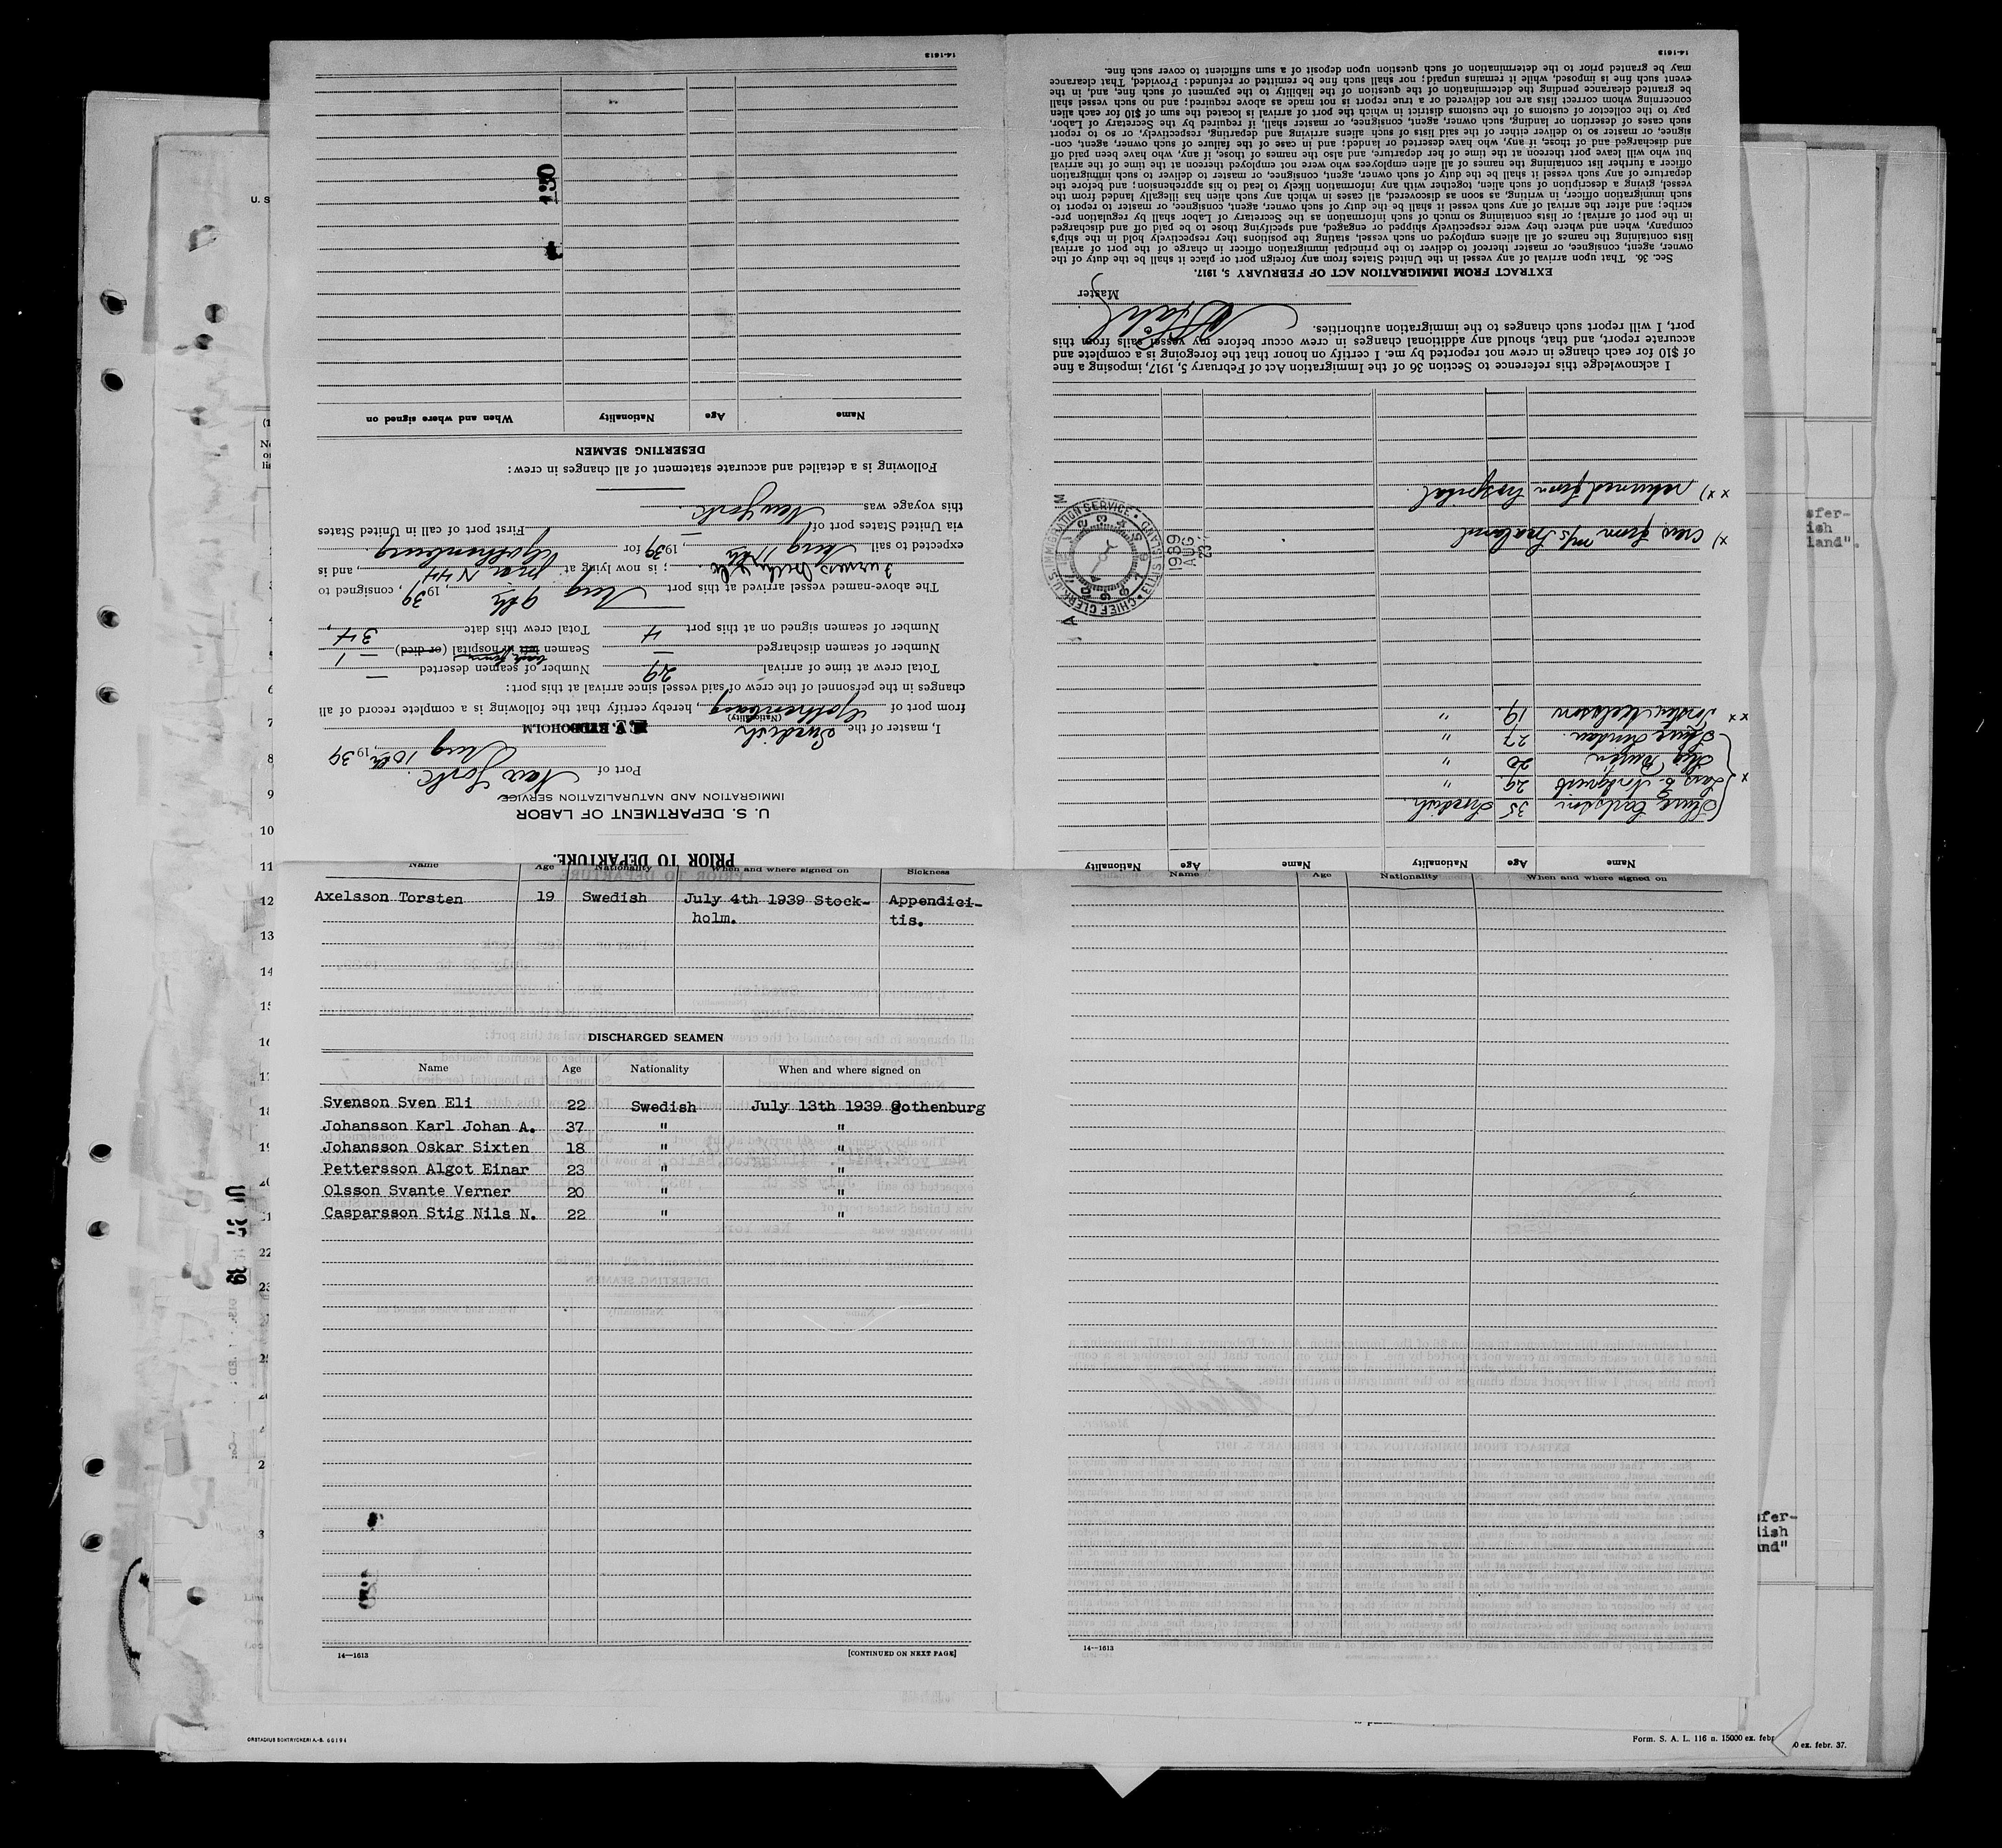 PRIOR TO DEPARTURE.
U. S. DEPARTMENT OF LABOR
IMMIGRATION AND NATURALIZATION SERVICE
Port of New York
Aug 10th, 1939
I, master of the Swedish
(Nationality)
from port of Gothenburg, hereby certify that the following is a complete record of all
changes in the personnel of the crew of said vessel since arrival at this port:
Total crew at time of arrival 29 Number of seamen deserted —
Number of seamen discharged — Seamen left in hospital (or died) 1
Number of seamen signed on at this port 4 Total crew this date 34,
The above-named vessel arrived at this port Aug 9th, 1939, consigned to
; is now lying at pier N 44, and is
expected to sail Aug 11th, 1939 for Gothenburg.
via United States port of First port of call in United States
this voyage was New York.
Following is a detailed and accurate statement of all changes in crew:
DESERTING SEAMEN
Name Age Nationality When and where signed on
130
14-1613
Name Age Nationality Name Age Nationality
Sture Carlsson 35 Swedish
x Lars E. Nordqvist 29 "
Stig 20 "
27 "
xx Torsten Axelsson 19 "
x) crew from M/S
xx) returned from hospital.
CHIEF CLERK, U. S. IMMIGRATION SERVICE • ELLIS ISLAND •
1939
AUG
23
I acknowledge this reference to Section 36 of the Immigration Act of February 5, 1917, imposing a fine
of $10 for each change in crew not reported by me. I certify on honor that the foregoing is a complete and
accurate report, and that, should any additional changes in crew occur before my vessel sails from this
port, I will report such changes to the immigration authorities.
Master
EXTRACT FROM IMMIGRATION ACT OF FEBRUARY 5, 1917.
Sec. 36. That upon arrival of any vessel in the United States from any foreign port or place it shall be the duty of the
owner, agent, consignee, or master thereof to deliver to the principal immigration officer in charge of the port of arrival
lists containing the names of all aliens employed on such vessel, stating the positions they respectively hold in the ship's
company, when and where they were respectively shipped or engaged, and specifying those to be paid off and discharged
in the port of arrival; or lists containing so much of such information as the Secretary of Labor shall by regulation pre-
scribe; and after the arrival of any such vessel it shall be the duty of such owner, agent, consignee, or master to report to
such immigration officer, in writing, as soon as discovered, all cases in which any such alien has illegally landed from the
vessel, giving a description of such alien, together with any information likely to lead to his apprehension; and before the
departure of any such vessel it shall be the duty of such owner, agent, consignee, or master to deliver to such immigration
officer a further list containing the names of all alien employees who were not employed thereon at the time of the arrival
but who will leave port thereon at the time of her departure, and also the names of those, if any, who have been paid off
and discharged and of those, if any, who have deserted or landed; and in case of the failure of such owner, agent, con-
signee, or master so to deliver either of the said lists of such aliens arriving and departing, respectively, or so to report
such cases of desertion or landing, such owner, agent, consignee, or master shall, if required by the Secretary of Labor,
pay to the collector of customs of the customs district in which the port of arrival is located the sum of $10 for each alien
concerning whom correct lists are not delivered or a true report is not made as above required; and no such vessel shall
be granted clearance pending the determination of the question of the liability to the payment of such fine, and, in the
event such fine is imposed, while it remains unpaid; nor shall such fine be remitted or refunded: Provided, That clearance
may be granted prior to the determination of such question upon deposit of a sum sufficient to cover such fine.
14-1613
Name Age Nationality When and where signed on Sickness
Axelsson Torsten 19 Swedish July 4th 1939 Stock- Appendici-
holm. tis.
DISCHARGED SEAMEN
Name Age Nationality When and where signed on
Svenson Sven Eli 22 Swedish July 13th 1939 Gothenburg
Johansson Karl Johan A. 37 " "
Johansson Oskar Sixten 18 " "
Pettersson Algot Einar 23 " "
Olsson Svante Verner 20 " "
Casparsson Stig Nils N. 22 " "
14—1613 [CONTINUED ON NEXT PAGE]
Name Age Nationality When and where signed on
14—1613
sfer-
ish
land".
sfer-
dish
and"
ORSTADIUS BOKTRYCKERI A.-B. 66194
Form. S. A. L. 116 n. 15000 ex. febr
0 ex. febr. 37.